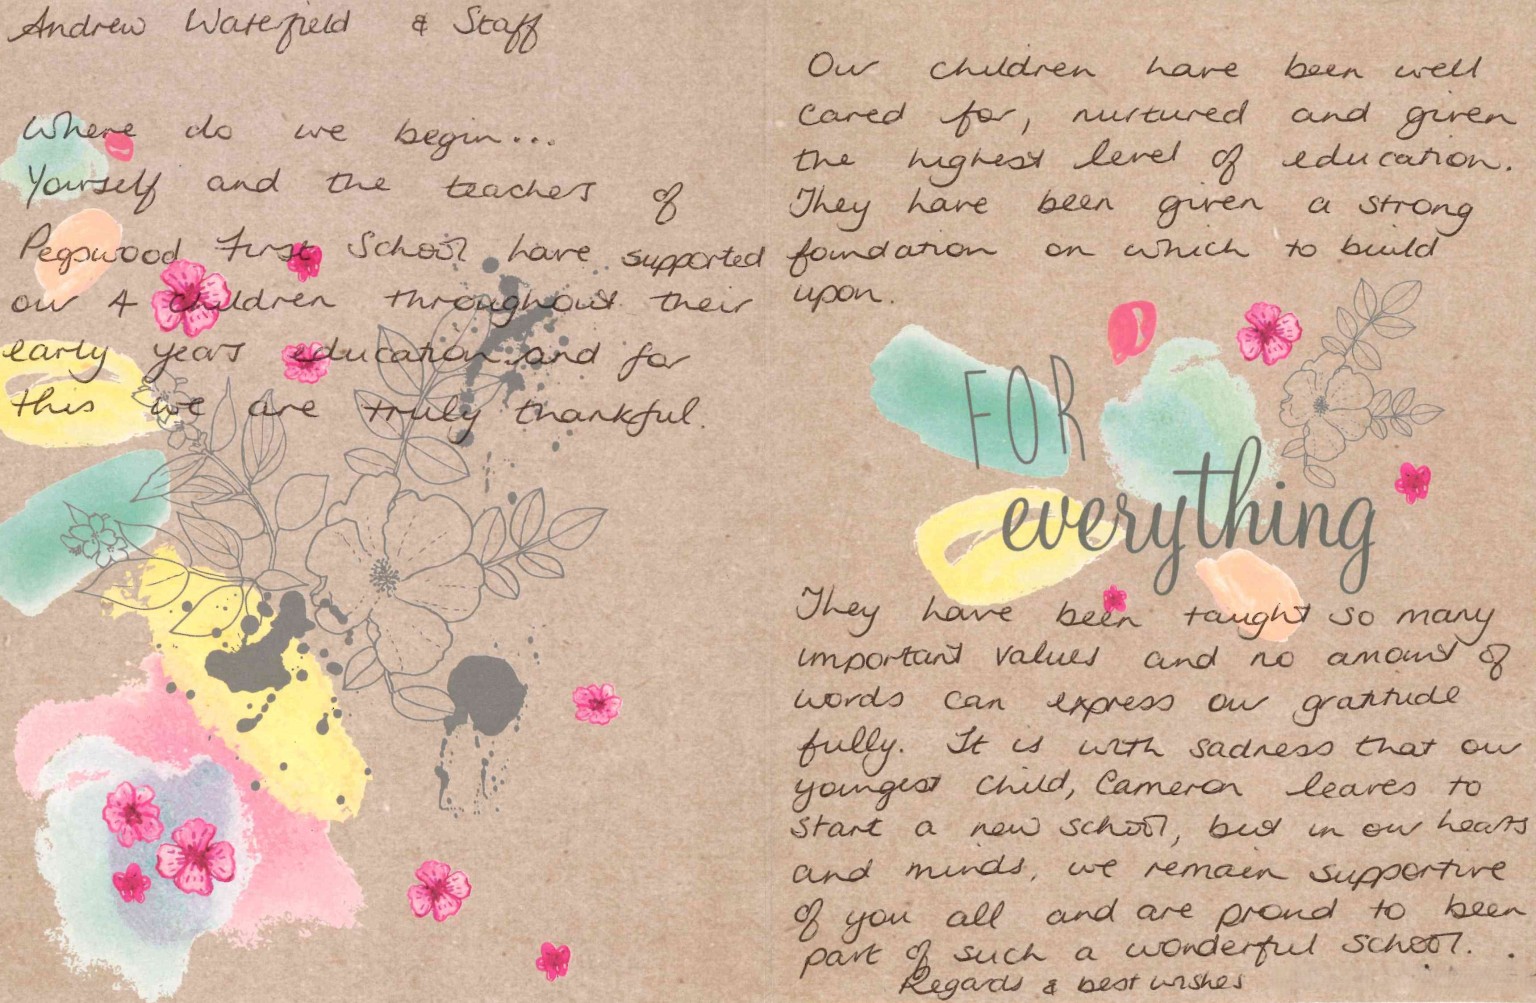 Andrew Waterfield & Staff
Where do we begin...
Yourself and the teachers of
Pegswood First School have supported
our 4 children throughout their
early years education and for
this we are truly thankful.
Our children have been well
cared for, nurtured and given
the highest level of education.
They have been given a strong
foundation on which to build
upon.
FOR
everything
They have been taught so many
important values and no amount of
words can express our gratitude
fully. It is with sadness that our
youngest child, Cameron leaves to
start a new school, but in our hearts
and minds, we remain supportive
of you all and are proud to been
part of such a wonderful school.
Regards & best wishes